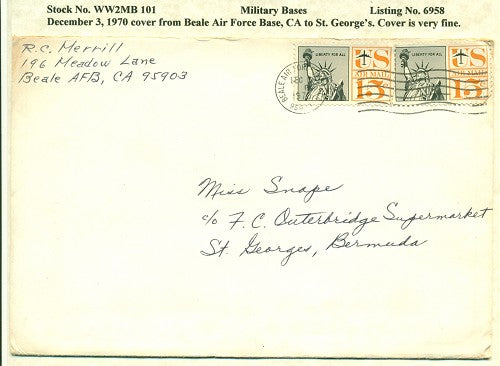 Stock No. WW2MB 101 Military Bases Listing No. 6958
December 3, 1970 cover from Beale Air Force Base, CA to St. George's. Cover is very fine.
R.C. Merrill
196 Meadow Lane
Beale AFB, CA 95903
LIBERTY FOR ALL US AIR MAIL 15¢
LIBERTY FOR ALL US AIR MAIL 15¢
BEALE AIR
Miss Snape
c/o F.C. Outerbridge Supermarket
St. Georges, Bermuda